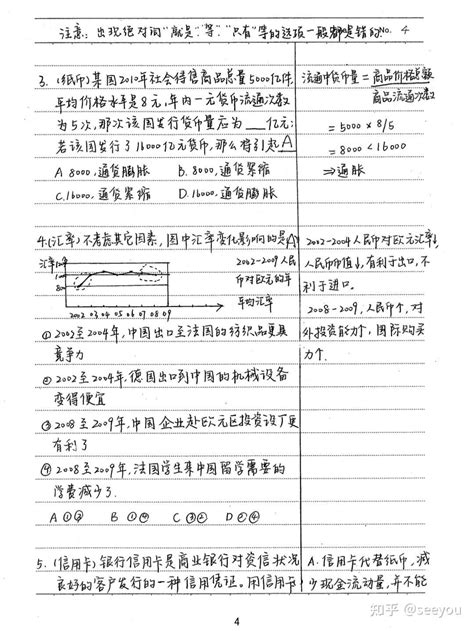 注意：出现绝对词"就是"等."只有"等的选项一般都是错的No. 4
3. (纸币)某国2010年社会待售商品总量5000亿件
平均价格水平是8元,年内一元货币流通次数
为5次,那次该国发行货币量应为___亿元;
若该国发行了16000亿元货币,那么将引起A
A 8000,通货膨胀 B. 8000,通货紧缩
C.16000,通货紧缩 D.16000,通货膨胀
流通中货币量=商品价格总额
商品流通次数
=5000×8/5
=8000<16000
⇒通胀
4.(汇率)不考虑其它因素,图中汇率变化影响的是A
汇率
2002 03 04 05 06 07 08 09
2002-2009人民
币对欧元的年
平均汇率
①2002至2004年,中国出口至法国的纺织品更具
竞争力
②2002至2004年,德国出口到中国的机械设备
变得便宜
③2008至2009年,中国企业赴欧元区投资设厂更
有利了
④2008至2009年,法国学生来中国留学需要的
学费减少了.
A ①③ B ①④ C ③② D ②④
2002-2004人民币对欧元汇率↓,
人民币币值↓,有利于出口,不
利于进口.
2008-2009,人民币↑,对
外投资能力↑,国际购买
力↑.
5.(信用卡)银行信用卡是商业银行对资信状况
良好的客户发行的一种信用凭证。用信用卡
A.信用卡代替纸币,减
少现金流动量,并不能
4
知乎 @seeyou